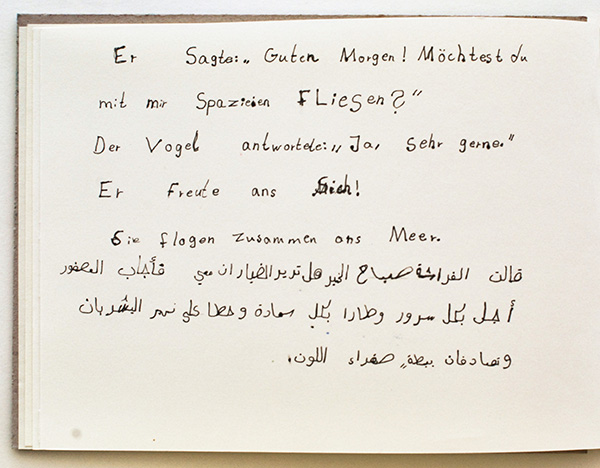 Er Sagte:„ Guten Morgen! Möchtest du
mit mir Spazieren FLiegen?"
Der Vogel antwortete:„Ja, Sehr gerne."
Er Freute ans Sich!
Sie flogen zusammen ans Meer.
قالت الفراشة صباح الخير هل تريد الطيران معي فأجاب العصفور
أجل بكل سرور وطارا بكل سعادة وحطا على نهر يشربان
وتصادفان ببطة صفراء اللون.